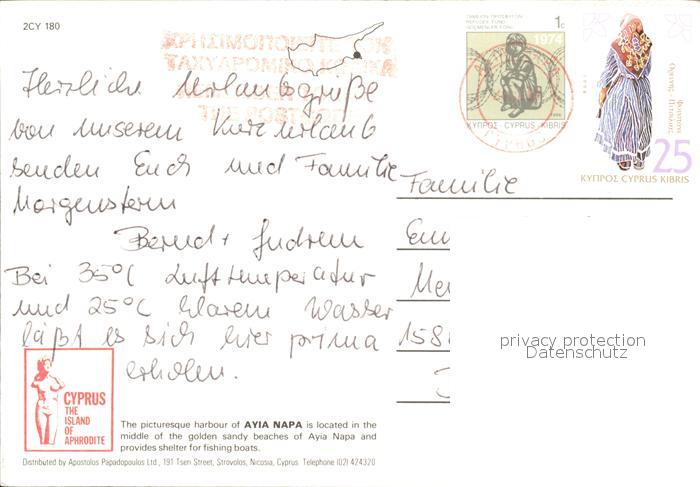 2CY 180
ΧΡΗΣΙΜΟΠΟΙΕΙΤΕ ΤΟΝ
ΤΑΧΥΔΡΟΜΙΚΟ ΚΩΔΙΚΑ
THE POST
1c
1974
ΚΥΠΡΟΣ CYPRUS KIBRIS
25
ΚΥΠΡΟΣ CYPRUS KIBRIS
Herzliche Urlaubsgrüße
von unserem Kurzurlaub
senden Euch und Familie
Morgenstern
Bernd +
Bei 35°C Lufttemperatur
und 25°C klarem Wasser
läßt es sich hier prima
erholen.
Familie
158
privacy protection
Datenschutz
CYPRUS
THE
ISLAND
OF
APHRODITE
The picturesque harbour of AYIA NAPA is located in the
middle of the golden sandy beaches of Ayia Napa and
provides shelter for fishing boats.
Distributed by Apostolos Papadopoulos Ltd., 191 Tsen Street, Strovolos, Nicosia, Cyprus. Telephone (02) 424320